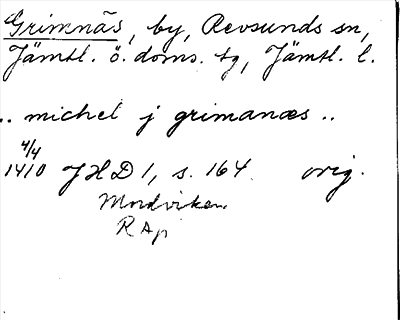 Grimnäs, by, Revsunds sn,
Jämtl. ö. doms. tg, Jämtl. l.
.. michel j grimanæs ..
4/4
1410 JHD 1, s. 164 orig.
Mordviken
RAp